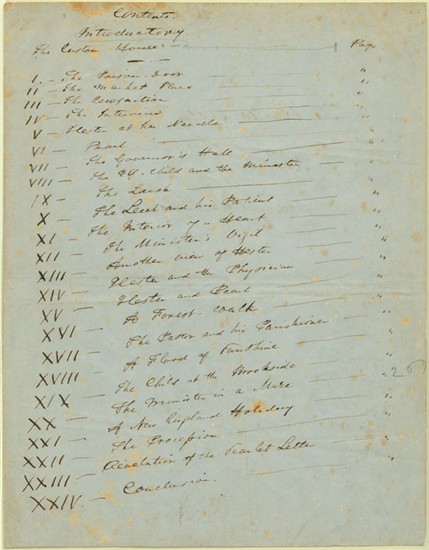 Contents.
Introductory
The Custom House — 1 Page
I. — The Prison-Door — "
II — The Market Place — "
III — The Recognition — "
IV — The Interview — "
V — Hester at her Needle — "
VI — Pearl — "
VII — The Governor's Hall — "
VIII — The Elf-Child and the Minister — "
IX — The Leech — "
X — The Leech and his Patient — "
XI — The Interior of a Heart — "
XII — The Minister's Vigil — "
XIII — Another View of Hester — "
XIV — Hester and the Physician — "
XV — Hester and Pearl — "
XVI — A Forest-walk — "
XVII — The Pastor and his Parishioner — "
XVIII — A Flood of Sunshine — "
XIX — The Child at the Brookside — "
XX — The Minister in a Maze — "
XXI — A New England Holiday — "
XXII — The Procession — "
XXIII — Revelation of the Scarlet Letter — "
XXIV. — Conclusion. — "